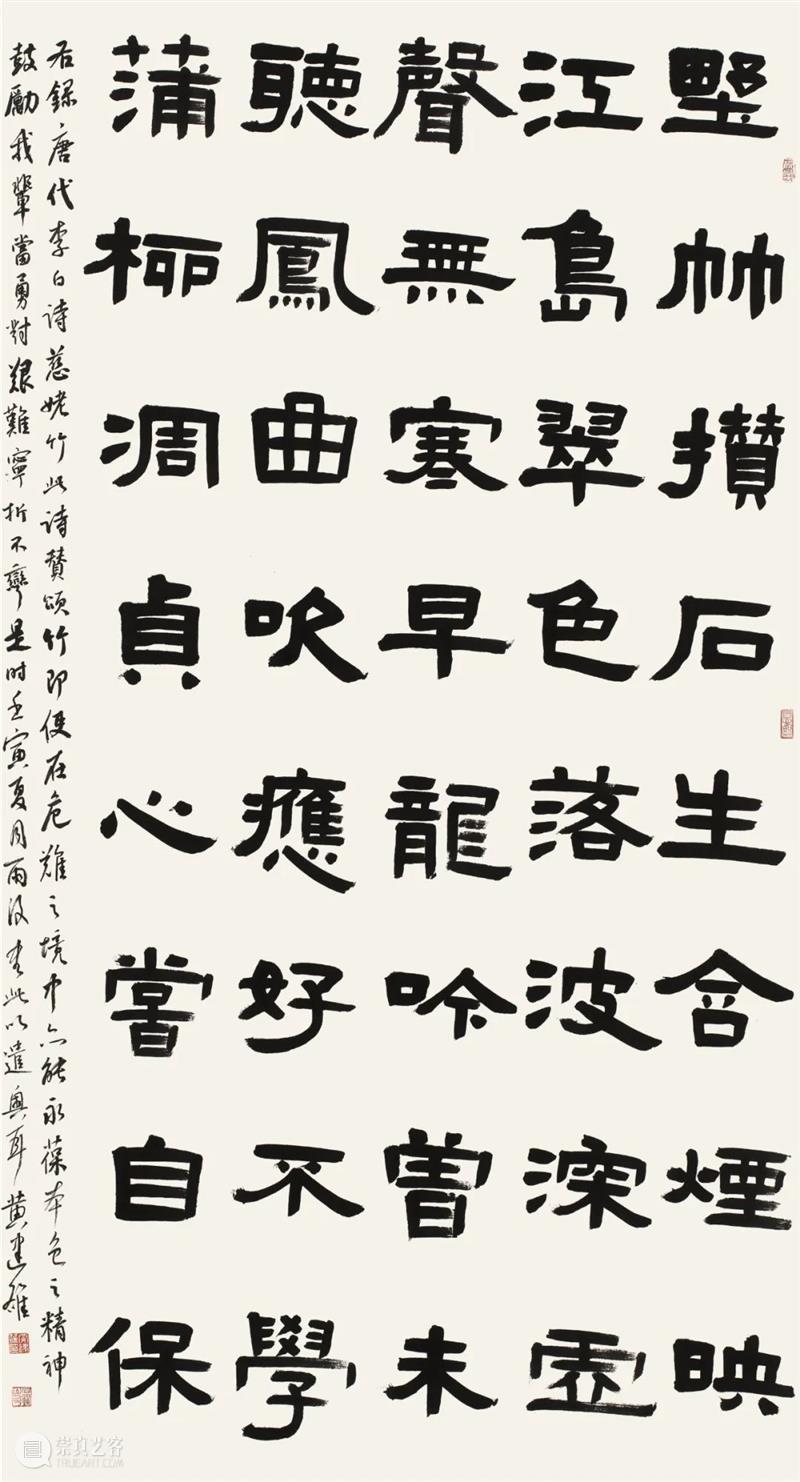 墅竹攢石生含煙映
江島翠色落波深虛
聲無寒早龍吟曾未
聴鳳曲吹應好不學
蒲柳凋貞心嘗自保
右錄唐代李白诗慈姥竹此诗贊頌竹即使在危難之境中亦能永葆本色之精神
鼓勵我輩當勇對艱難寧折不彎是时壬寅夏月雨後書此以遣興耳黄建雄
崇真艺客
TRUEART.COM